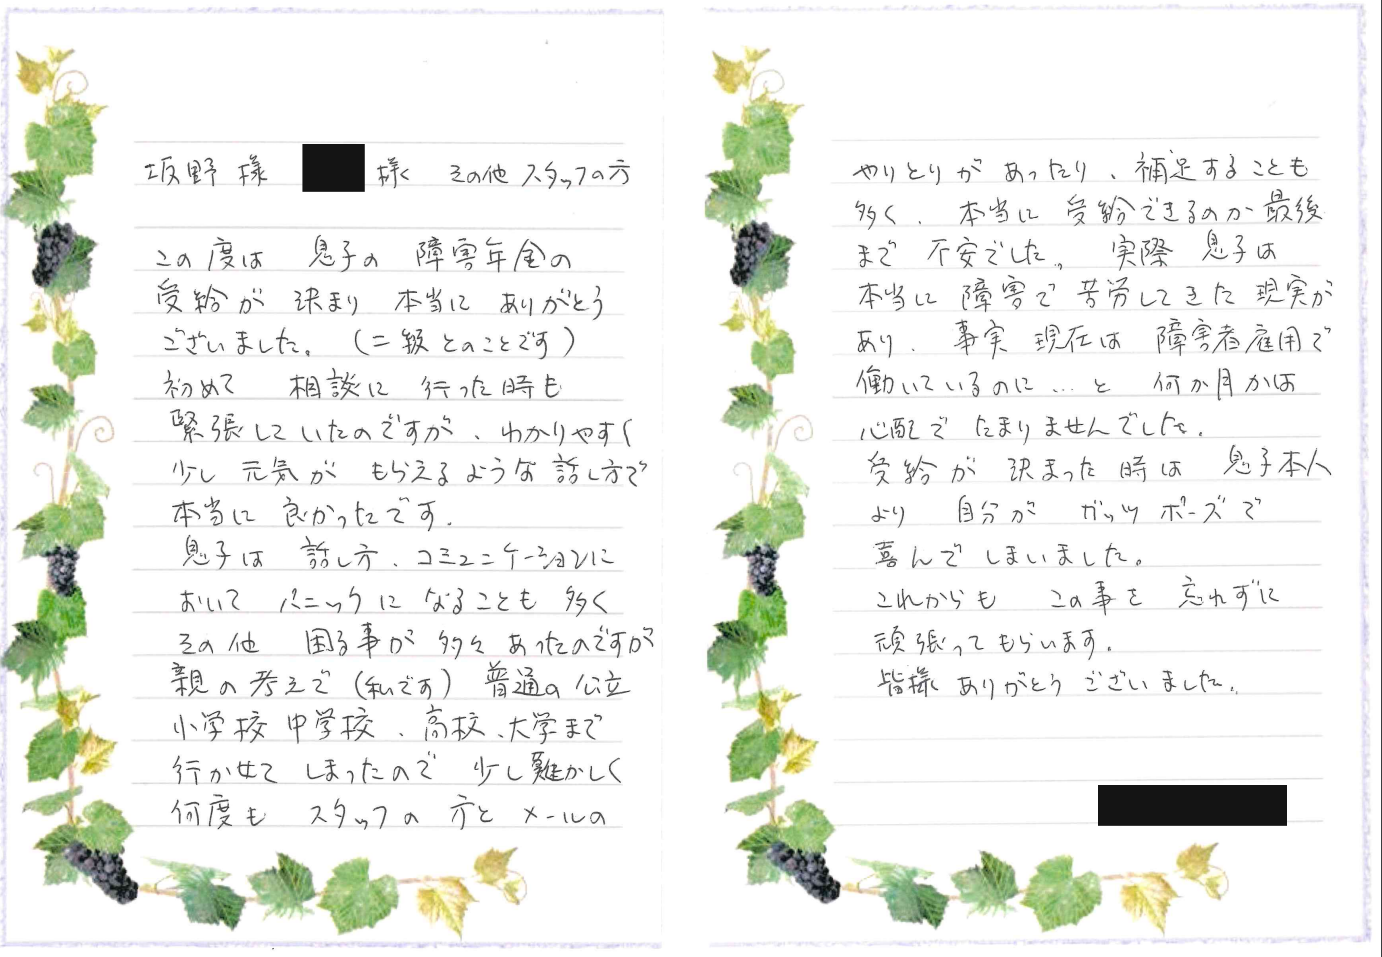 坂野様 様 その他スタッフの方
この度は 息子の 障害年金の
受給が 決まり 本当に ありがとう
ございました。(二級とのことです)
初めて 相談に 行った時も
緊張していたのですが、わかりやすく
少し 元気が もらえるような 話し方で
本当に 良かったです。
息子は 話し方、コミュニケーションに
おいて パニックに なることも 多く
その他 困る事が 多々 あったのですが
親の考えで(私です) 普通の 公立
小学校 中学校、高校、大学まで
行かせて しまったので 少し難かしく
何度も スタッフの 方と メールの
やりとりが あったり、補足することも
多く、本当に 受給できるのか 最後
まで 不安でした。 実際 息子は
本当に 障害で 苦労してきた 現実が
あり、事実 現在は 障害者雇用で
働いているのに…と 何か月かは
心配で たまりませんでした。
受給が 決まった時は 息子本人
より 自分が ガッツポーズで
喜んで しまいました。
これからも この事を 忘れずに
頑張ってもらいます。
皆様 ありがとう ございました。